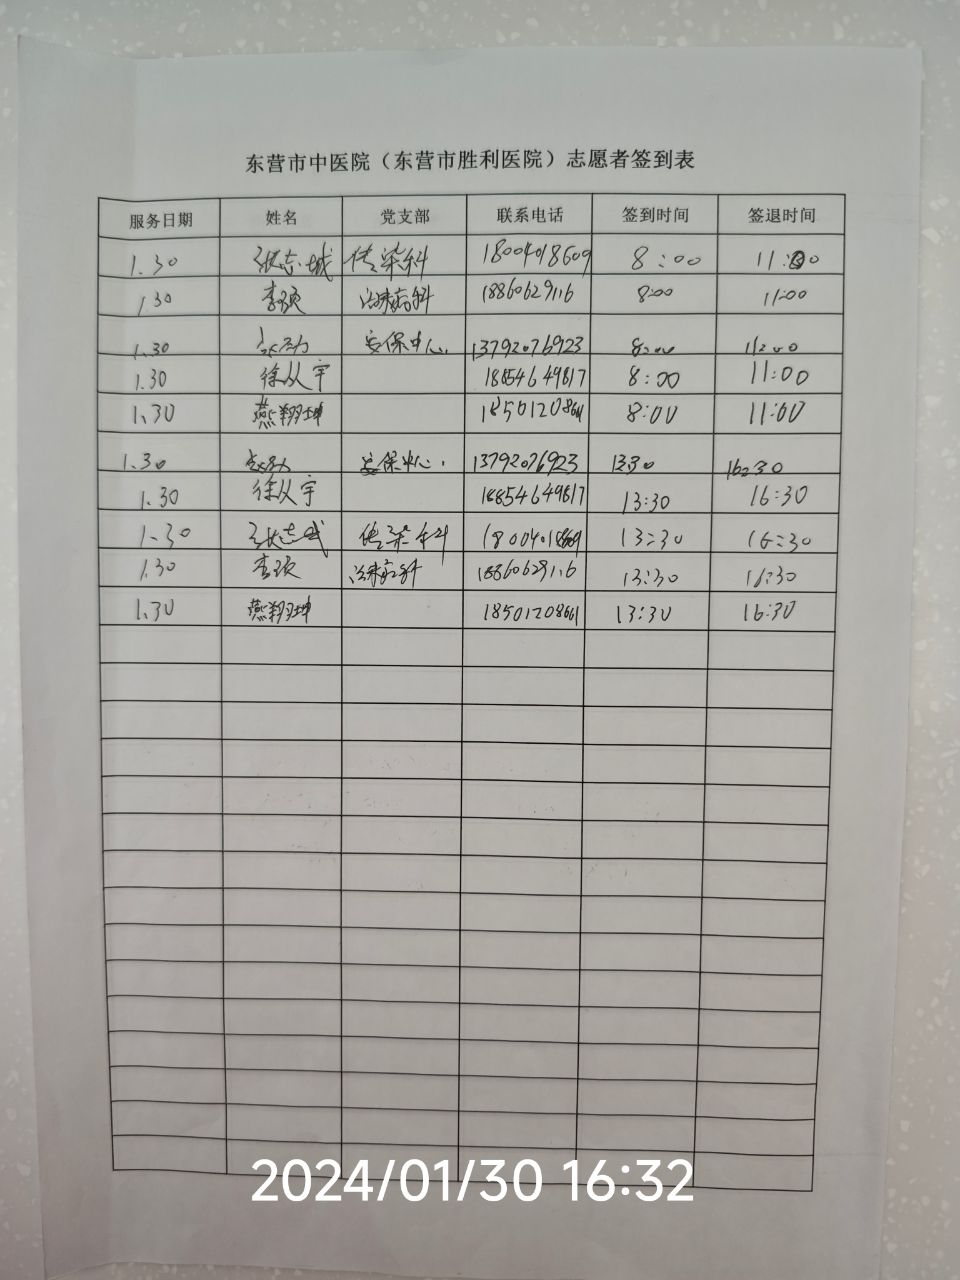 东营市中医院（东营市胜利医院）志愿者签到表
服务日期 姓名 党支部 联系电话 签到时间 签退时间
1.30 张志城 传染科 18004018609 8:00 11:00
1.30 李项 治未病科 18860629116 8:00 11:00
1.30 安保中心 13792076923 8:00 11:00
1.30 徐从宇 18854649817 8:00 11:00
1.30 燕翔坤 18501208661 8:00 11:00
1.30 安保中心 13792076923 13:30 16:30
1.30 徐从宇 18854649817 13:30 16:30
1.30 张志城 传染科 18004018609 13:30 16:30
1.30 李项 治未病科 18860629116 13:30 16:30
1.30 燕翔坤 18501208661 13:30 16:30
2024/01/30 16:32